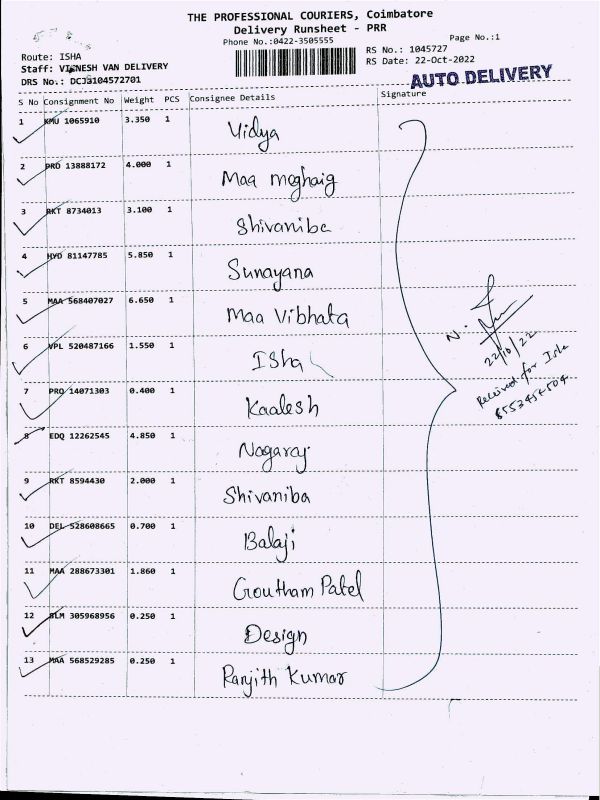 THE PROFESSIONAL COURIERS, Coimbatore
Delivery Runsheet - PRR
Phone No.:0422-3505555
Page No.:1
Route: ISHA
RS No.: 1045727
Staff: VIGNESH VAN DELIVERY
RS Date: 22-Oct-2022
DRS No.: DCJB104572701
AUTO DELIVERY
S No Consignment No Weight PCS Consignee Details Signature
1 KMU 1065910 3.350 1 Vidya
2 PRO 13888172 4.000 1 Maa moghaig
3 RKT 8734013 3.100 1 Shivaniba
4 HYD 81147785 5.850 1 Sunayana
5 MAA 568407027 6.650 1 Maa Vibhata
6 VPL 520487166 1.550 1 Isha
7 PRO 14071303 0.400 1 Kaalesh
8 EDQ 12262545 4.850 1 Nagaraj
9 RKT 8594430 2.000 1 Shivaniba
10 DEL 528608665 0.700 1 Balaji
11 MAA 288673301 1.860 1 Goutham Patel
12 BLM 305968956 0.250 1 Design
13 MAA 568529285 0.250 1 Ranjith Kumar
N.
22/10/22
Received for Isha